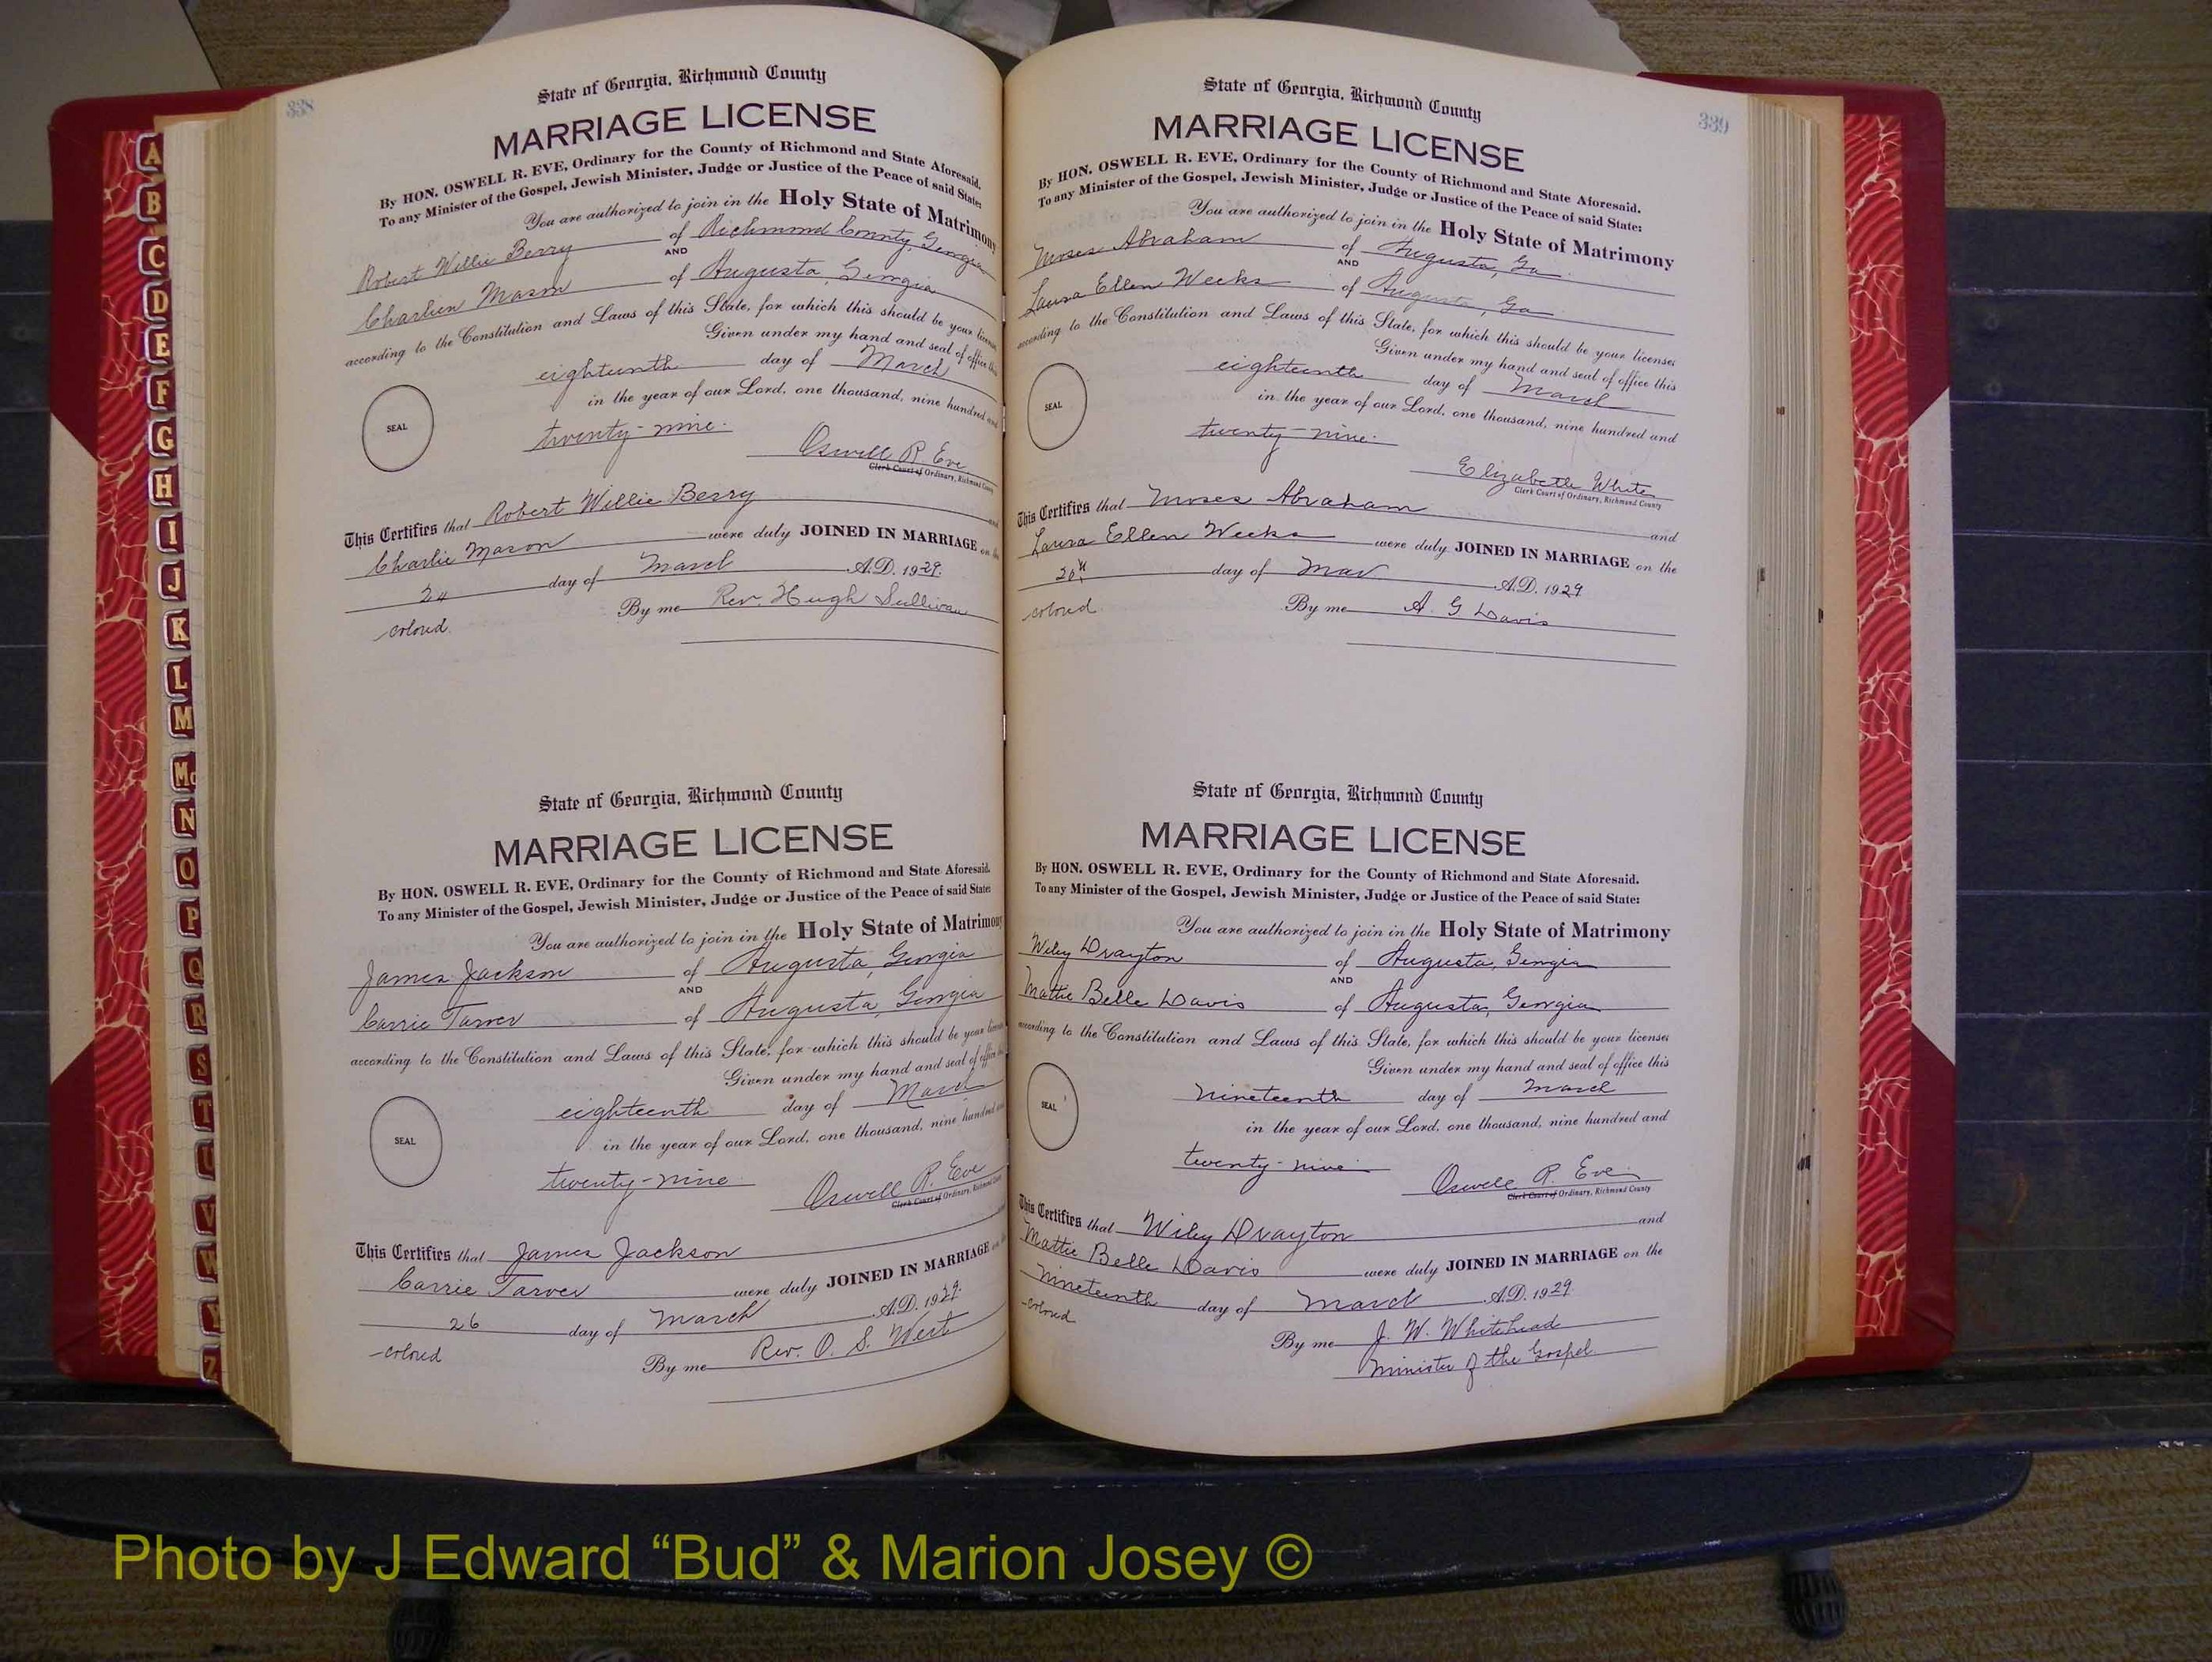 338
State of Georgia, Richmond County
MARRIAGE LICENSE
By HON. OSWELL R. EVE, Ordinary for the County of Richmond and State Aforesaid.
To any Minister of the Gospel, Jewish Minister, Judge or Justice of the Peace of said State:
You are authorized to join in the Holy State of Matrimony
Robert Willie Berry of Richmond County, Georgia
AND
Charlien Mason of Augusta, Georgia
according to the Constitution and Laws of this State, for which this should be your license
Given under my hand and seal of office this
eighteenth day of March
in the year of our Lord, one thousand, nine hundred and
SEAL
twenty-nine.
Oswell R. Eve
Clerk Court of Ordinary, Richmond County
This Certifies that Robert Willie Berry and
Charlie Mason were duly JOINED IN MARRIAGE on the
24 day of March A.D. 1929.
By me Rev. Hugh Sullivan
colored.
State of Georgia, Richmond County
MARRIAGE LICENSE
By HON. OSWELL R. EVE, Ordinary for the County of Richmond and State Aforesaid.
To any Minister of the Gospel, Jewish Minister, Judge or Justice of the Peace of said State:
You are authorized to join in the Holy State of Matrimony
James Jackson of Augusta, Georgia
AND
Carrie Tarver of Augusta, Georgia
according to the Constitution and Laws of this State, for which this should be your license
Given under my hand and seal of office this
eighteenth day of March
in the year of our Lord, one thousand, nine hundred and
SEAL
twenty-nine
Oswell R. Eve
Clerk Court of Ordinary, Richmond County
This Certifies that James Jackson
Carrie Tarver were duly JOINED IN MARRIAGE on the
26 day of March A.D. 1929.
By me Rev. O. S. West
colored
339
State of Georgia, Richmond County
MARRIAGE LICENSE
By HON. OSWELL R. EVE, Ordinary for the County of Richmond and State Aforesaid.
To any Minister of the Gospel, Jewish Minister, Judge or Justice of the Peace of said State:
You are authorized to join in the Holy State of Matrimony
Moses Abraham of Augusta, Ga.
AND
Laura Ellen Weeks of Augusta, Ga
according to the Constitution and Laws of this State, for which this should be your license:
Given under my hand and seal of office this
eighteenth day of March
in the year of our Lord, one thousand, nine hundred and
SEAL
twenty-nine.
Elizabeth White
Clerk Court of Ordinary, Richmond County
This Certifies that Moses Abraham and
Laura Ellen Weeks were duly JOINED IN MARRIAGE on the
20th day of Mar A.D. 1929
By me A. G Davis
colored
State of Georgia, Richmond County
MARRIAGE LICENSE
By HON. OSWELL R. EVE, Ordinary for the County of Richmond and State Aforesaid.
To any Minister of the Gospel, Jewish Minister, Judge or Justice of the Peace of said State:
You are authorized to join in the Holy State of Matrimony
Wiley Drayton of Augusta, Georgia
AND
Mattie Belle Davis of Augusta, Georgia
according to the Constitution and Laws of this State, for which this should be your license:
Given under my hand and seal of office this
Nineteenth day of March
in the year of our Lord, one thousand, nine hundred and
SEAL
twenty-nine
Oswell R. Eve
Clerk Court of Ordinary, Richmond County
This Certifies that Wiley Drayton and
Mattie Belle Davis were duly JOINED IN MARRIAGE on the
Nineteenth day of March A.D. 1929.
colored
By me J. W. Whitehead
Minister of the Gospel.
A
B
C
D
E
F
G
H
I
J
K
L
M
Mc
N
O
P
Q
R
S
T
U
V
W
Y
Z
Photo by J Edward “Bud” & Marion Josey ©